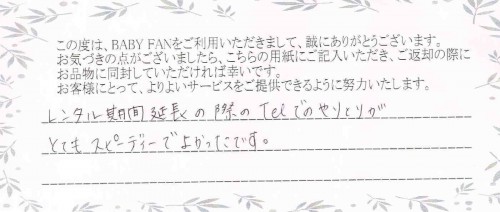 この度は、BABY FANをご利用いただきまして、誠にありがとうございます。
お気づきの点がございましたら、こちらの用紙にご記入いただき、ご返却の際に
お品物に同封していただければ幸いです。
お客様にとって、よりよいサービスをご提供できるように努力いたします。
レンタル期間延長の際のTelでのやりとりが
とてもスピーディーでよかったです。